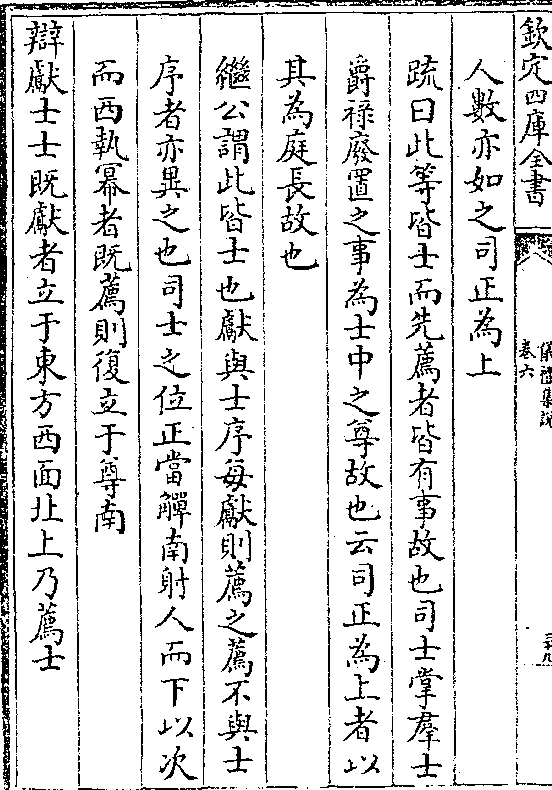 欽定四庫全書
儀禮集說
卷六
人數亦如之司正為上
疏曰此等皆士而先薦者皆有事故也司士掌羣士
爵祿廢置之事為士中之尊故也云司正為上者以
其為庭長故也
繼公謂此皆士也獻與士序每獻則薦之薦不與士
序者亦異之也司士之位正當觶南射人而下以次
而西執冪者既薦則復立于尊南
辯獻士士既獻者立于東方西面北上乃薦士